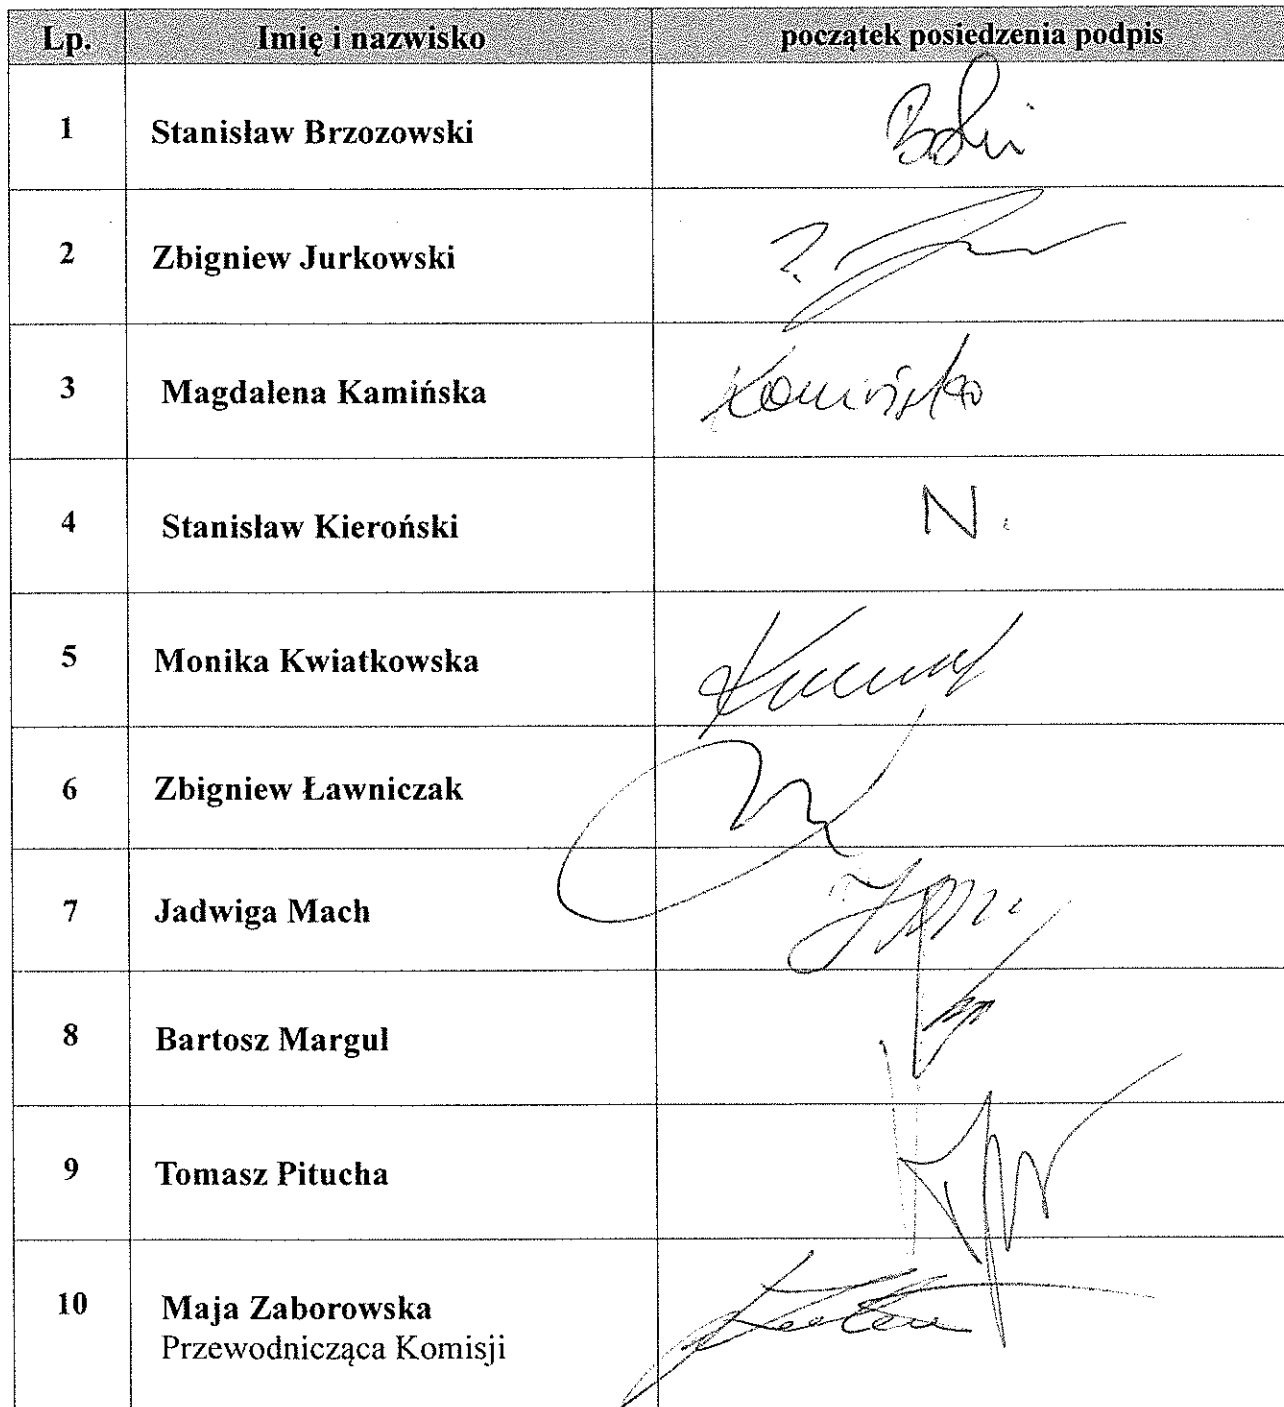 Lp. Imię i nazwisko początek posiedzenia podpis
1 Stanisław Brzozowski
2 Zbigniew Jurkowski
3 Magdalena Kamińska Kamińska
4 Stanisław Kieroński N.
5 Monika Kwiatkowska
6 Zbigniew Ławniczak
7 Jadwiga Mach
8 Bartosz Margul
9 Tomasz Pitucha
10 Maja Zaborowska
Przewodnicząca Komisji